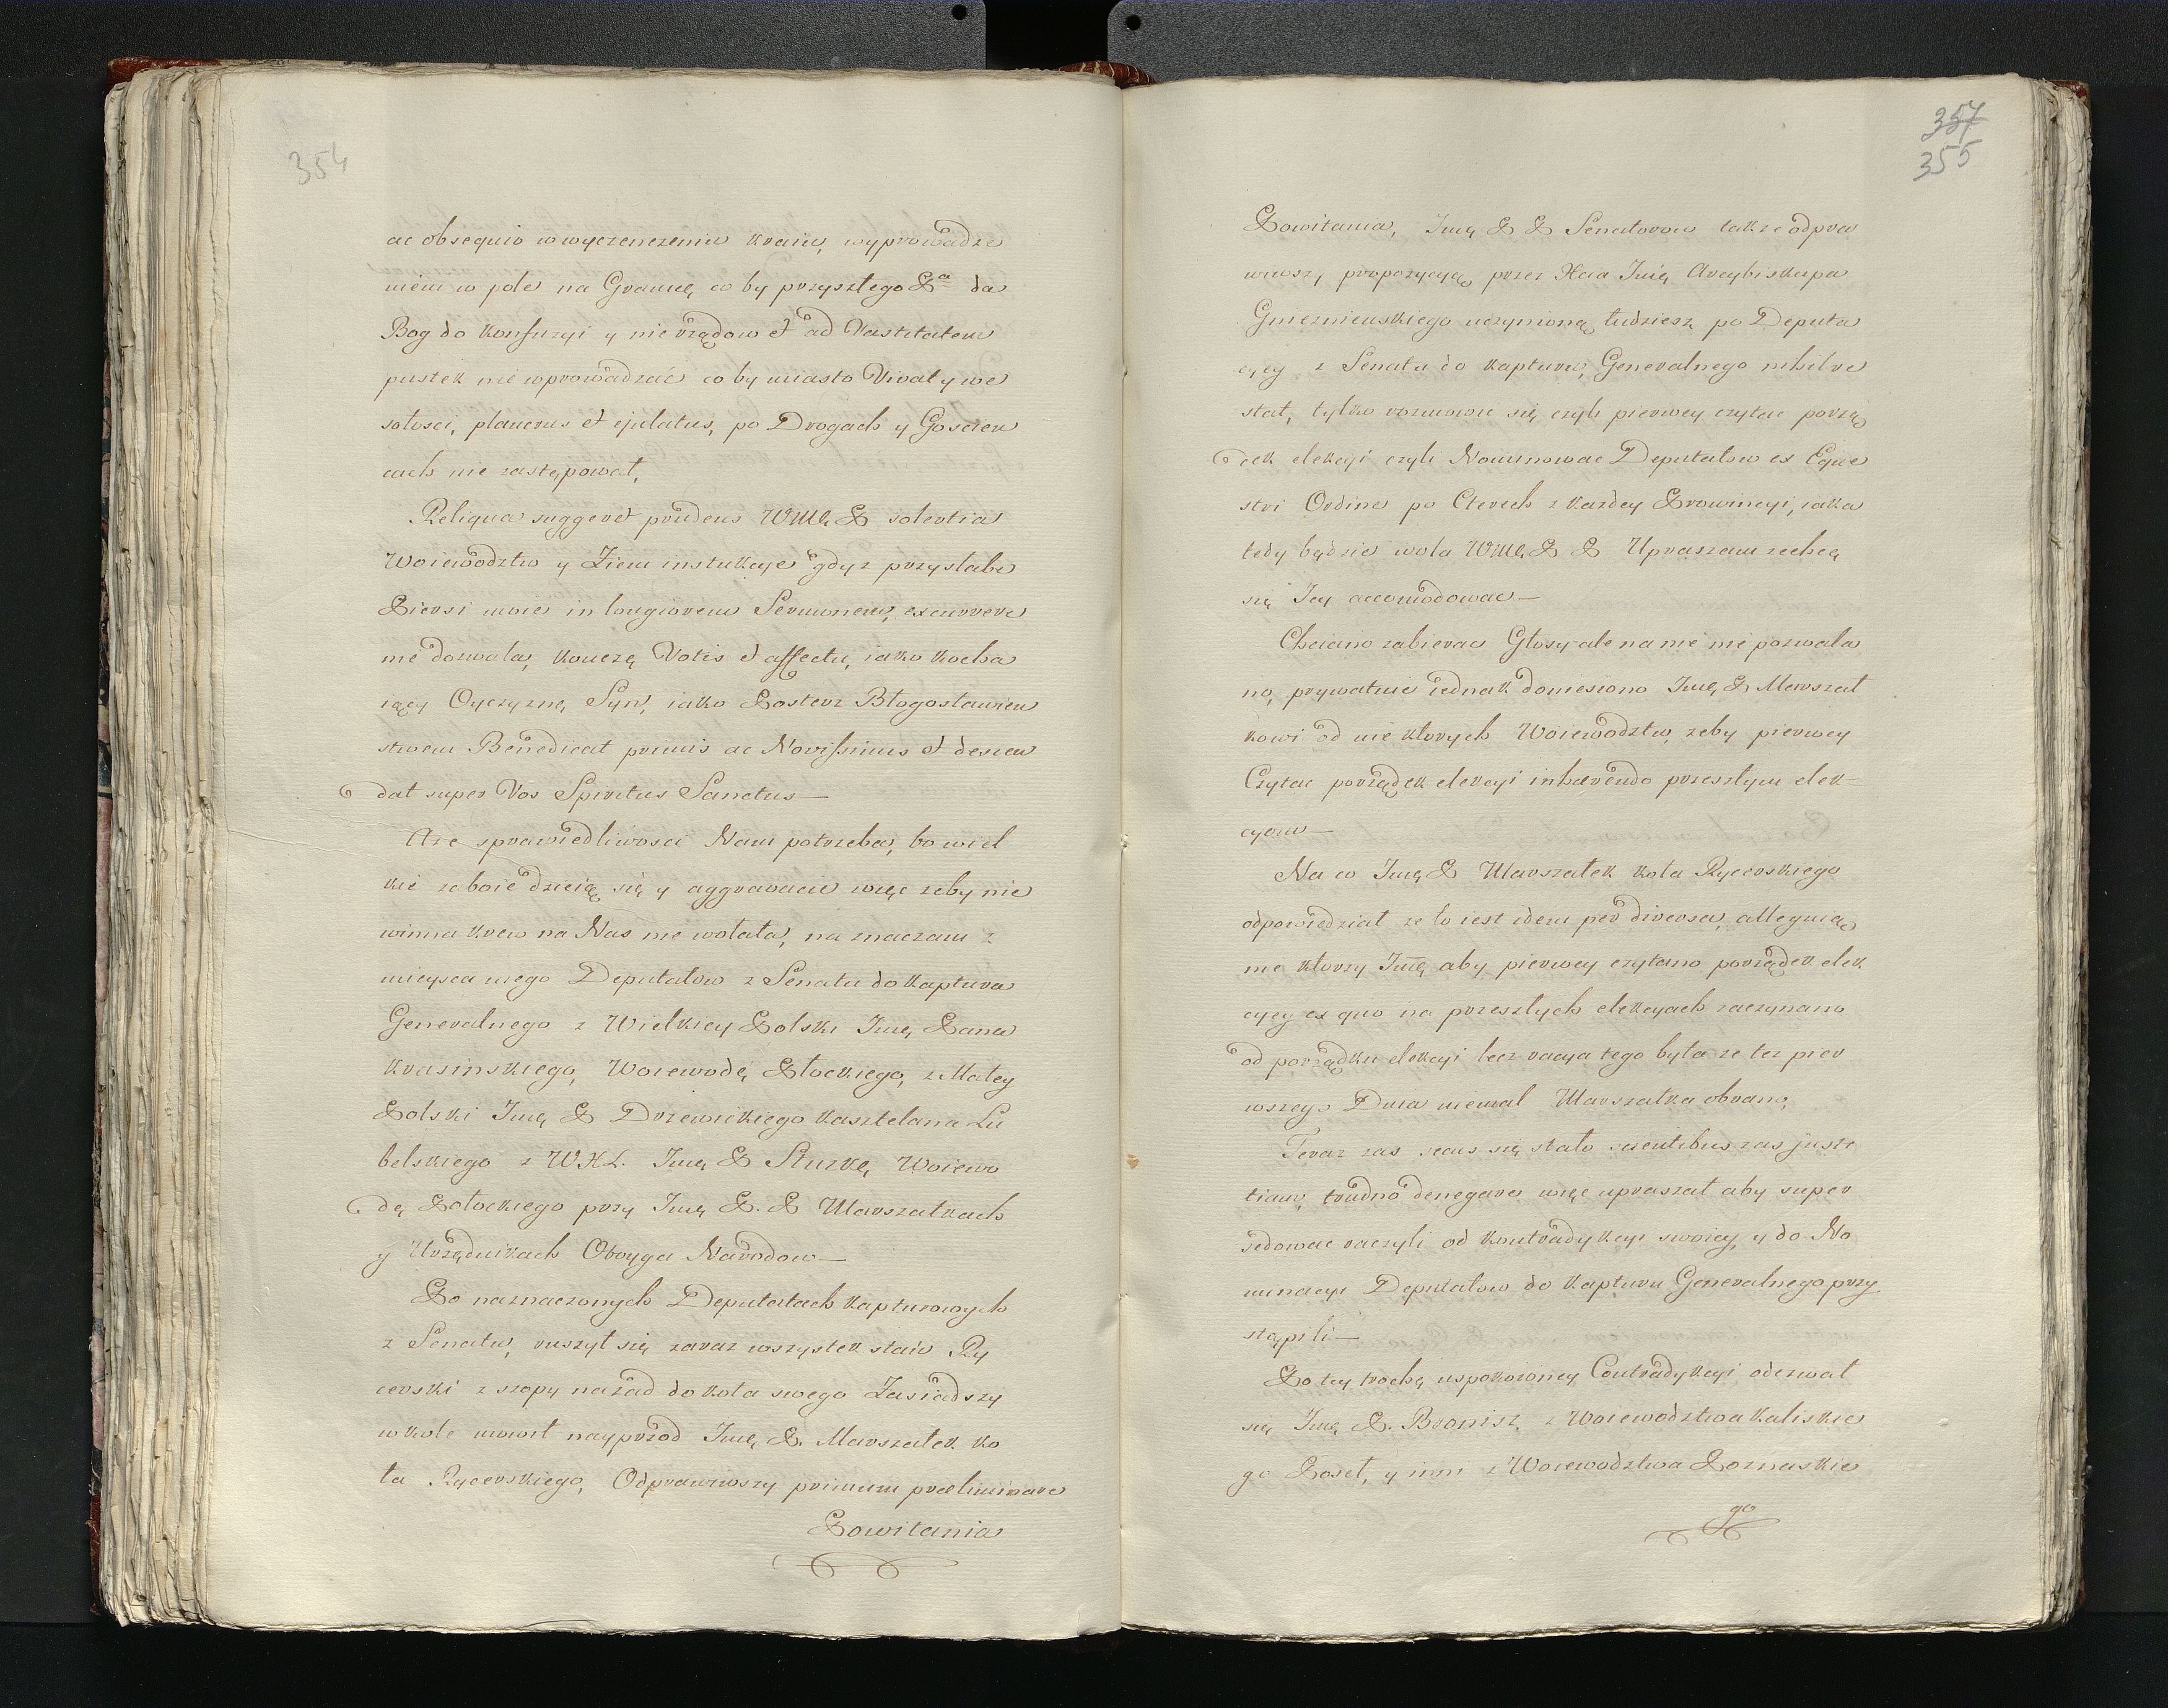 354
ac obsequio w wyczenczeniu kraiu, wyprowadze
niem w pole na Granicę, co by przyszłego Pa da
Bog do konfuzyi y nie rządow et ad Vastitatem
pustek nie wprowadzać co by miasto Vivat y we
sołosci, planctus et ejulatus, po Drogach y Goscien
cach nie zastępował,
Reliqua suggeret prudens WMę P solertia
Woiewodztw y Ziem instukcye gdyz przysłabe
Piersi moie in longiorem Sermonem, excurrere
nie dozwala, konczę Votis et affectu, iako kocha
iący Oyczyznę Syn, iako Pasterz Błogosławien
stwem Benedicat primis ac Novissimis et descen
dat super Vos Spiritus Sanctus—
Aze sprawiedliwosci Nam potrzeba, bo wiel
kie zaboie dzieią się y aggravacie więc zeby nie
winna krew na Nas nie wołała, na znaczam z
mieysca mego Deputatow z Senatu do kaptura
Generalnego z Wielkiey Polski Jmę Pana
krasinskiego, Woiewodę Płockiego, z Małey
Polski Jmę P Drzewickiego kasztelana Lu
belskiego z WXL. Jmę P Sluzkę Woiewo
dę Połockiego przy Jmę P. P Marszałkach
y Urzędnikach Oboyga Narodow—
Po naznaczonych Deputatach kapturowych
z Senatu, ruszył się zaraz wszystek stan Ry
cerski z szopy nazad do koła swego Zasiadszy
w kole mowił nayprzod Jmę P. Marszałek ko
ła Rycerskiego, Odprawiwszy primum præliminare
Powitania
357
355
Powitania, Jmę P P Senatorow takze odpra
wiwszy propozycyą przez Xcia Jmę Arcybiskupa
Gnieznienskiego uczynioną tudziesz po Deputa
cyey z Senatu do kapturu, Generalnego nihil re
stat, tylko rozmowic się czyli pierwey czytac porzą
dek elekcyi czyli Nominowac Deputatow ex Eque
stri Ordine po Cterech z kazdey Prowincyi, iaka
tedy będzie wola WMę P P Upraszam zechcą
się Jey accomodowac—
Chciano zabierac Głosy ale na nie nie pozwala
no, prywatnie iednak doniesiono Jmę P Marszał
kowi od nie ktorych Woiewodztw, zeby pierwey
Czytac porządek elekcyi inhærendo przeszłym elek-
cyom—
Na co Jmę P Marszałek koła Rycerskiego
odpowiedział ze to iest idem per diversa, alleguią
nie ktorzy Jmę aby pierwey czytano porządek elek
cyey ex quo na przeszłych elekcyach zaczynano
od porządku elekcyi lecz racya tego była ze tez pier
wszego Dnia niemal Marszałka obrano,
Teraz zas secus się stało sicientibus zas justi
tiam, trudno denegare więc upraszał aby super
sedowac raczyli od kontradykcyi swoiey, y do No
minacyi Deputatow do kapturu Generalnego przy
stąpili—
Po tey trochę uspokoioney Contradykcyi odezwał
się Jmę P. Bronisz, z Woiewodztwa kaliskie
go Poseł, y inni z Woiewodztwa Poznaskie
go